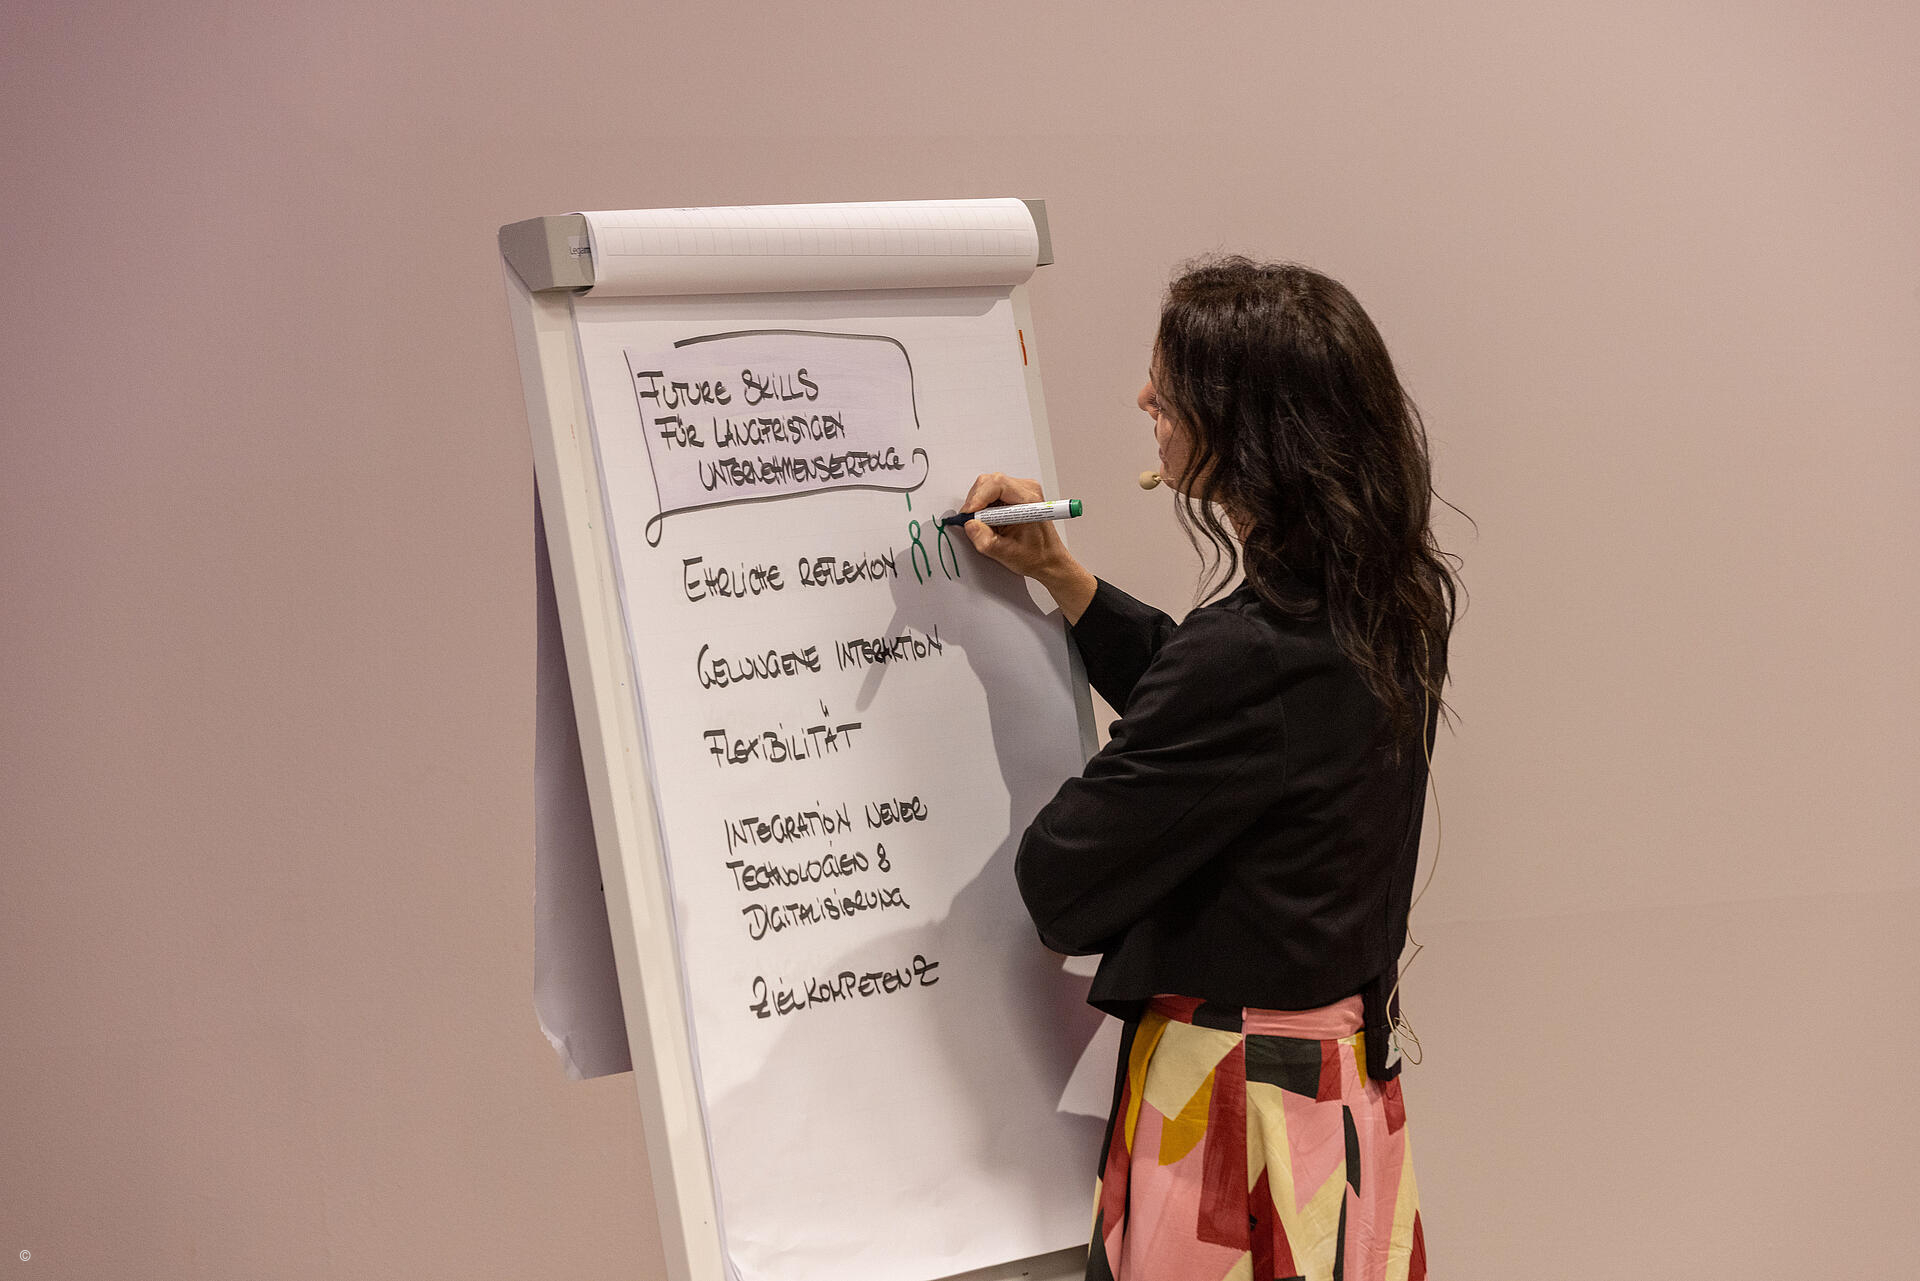 FUTURE SKILLS
FÜR LANGFRISTIGEN
UNTERNEHMENSERFOLG
EHRLICHE REFLEXION
GELUNGENE INTERAKTION
FLEXIBILITÄT
INTEGRATION NEUER
TECHNOLOGIEN &
DIGITALISIERUNG
ZIELKOMPETENZ
©